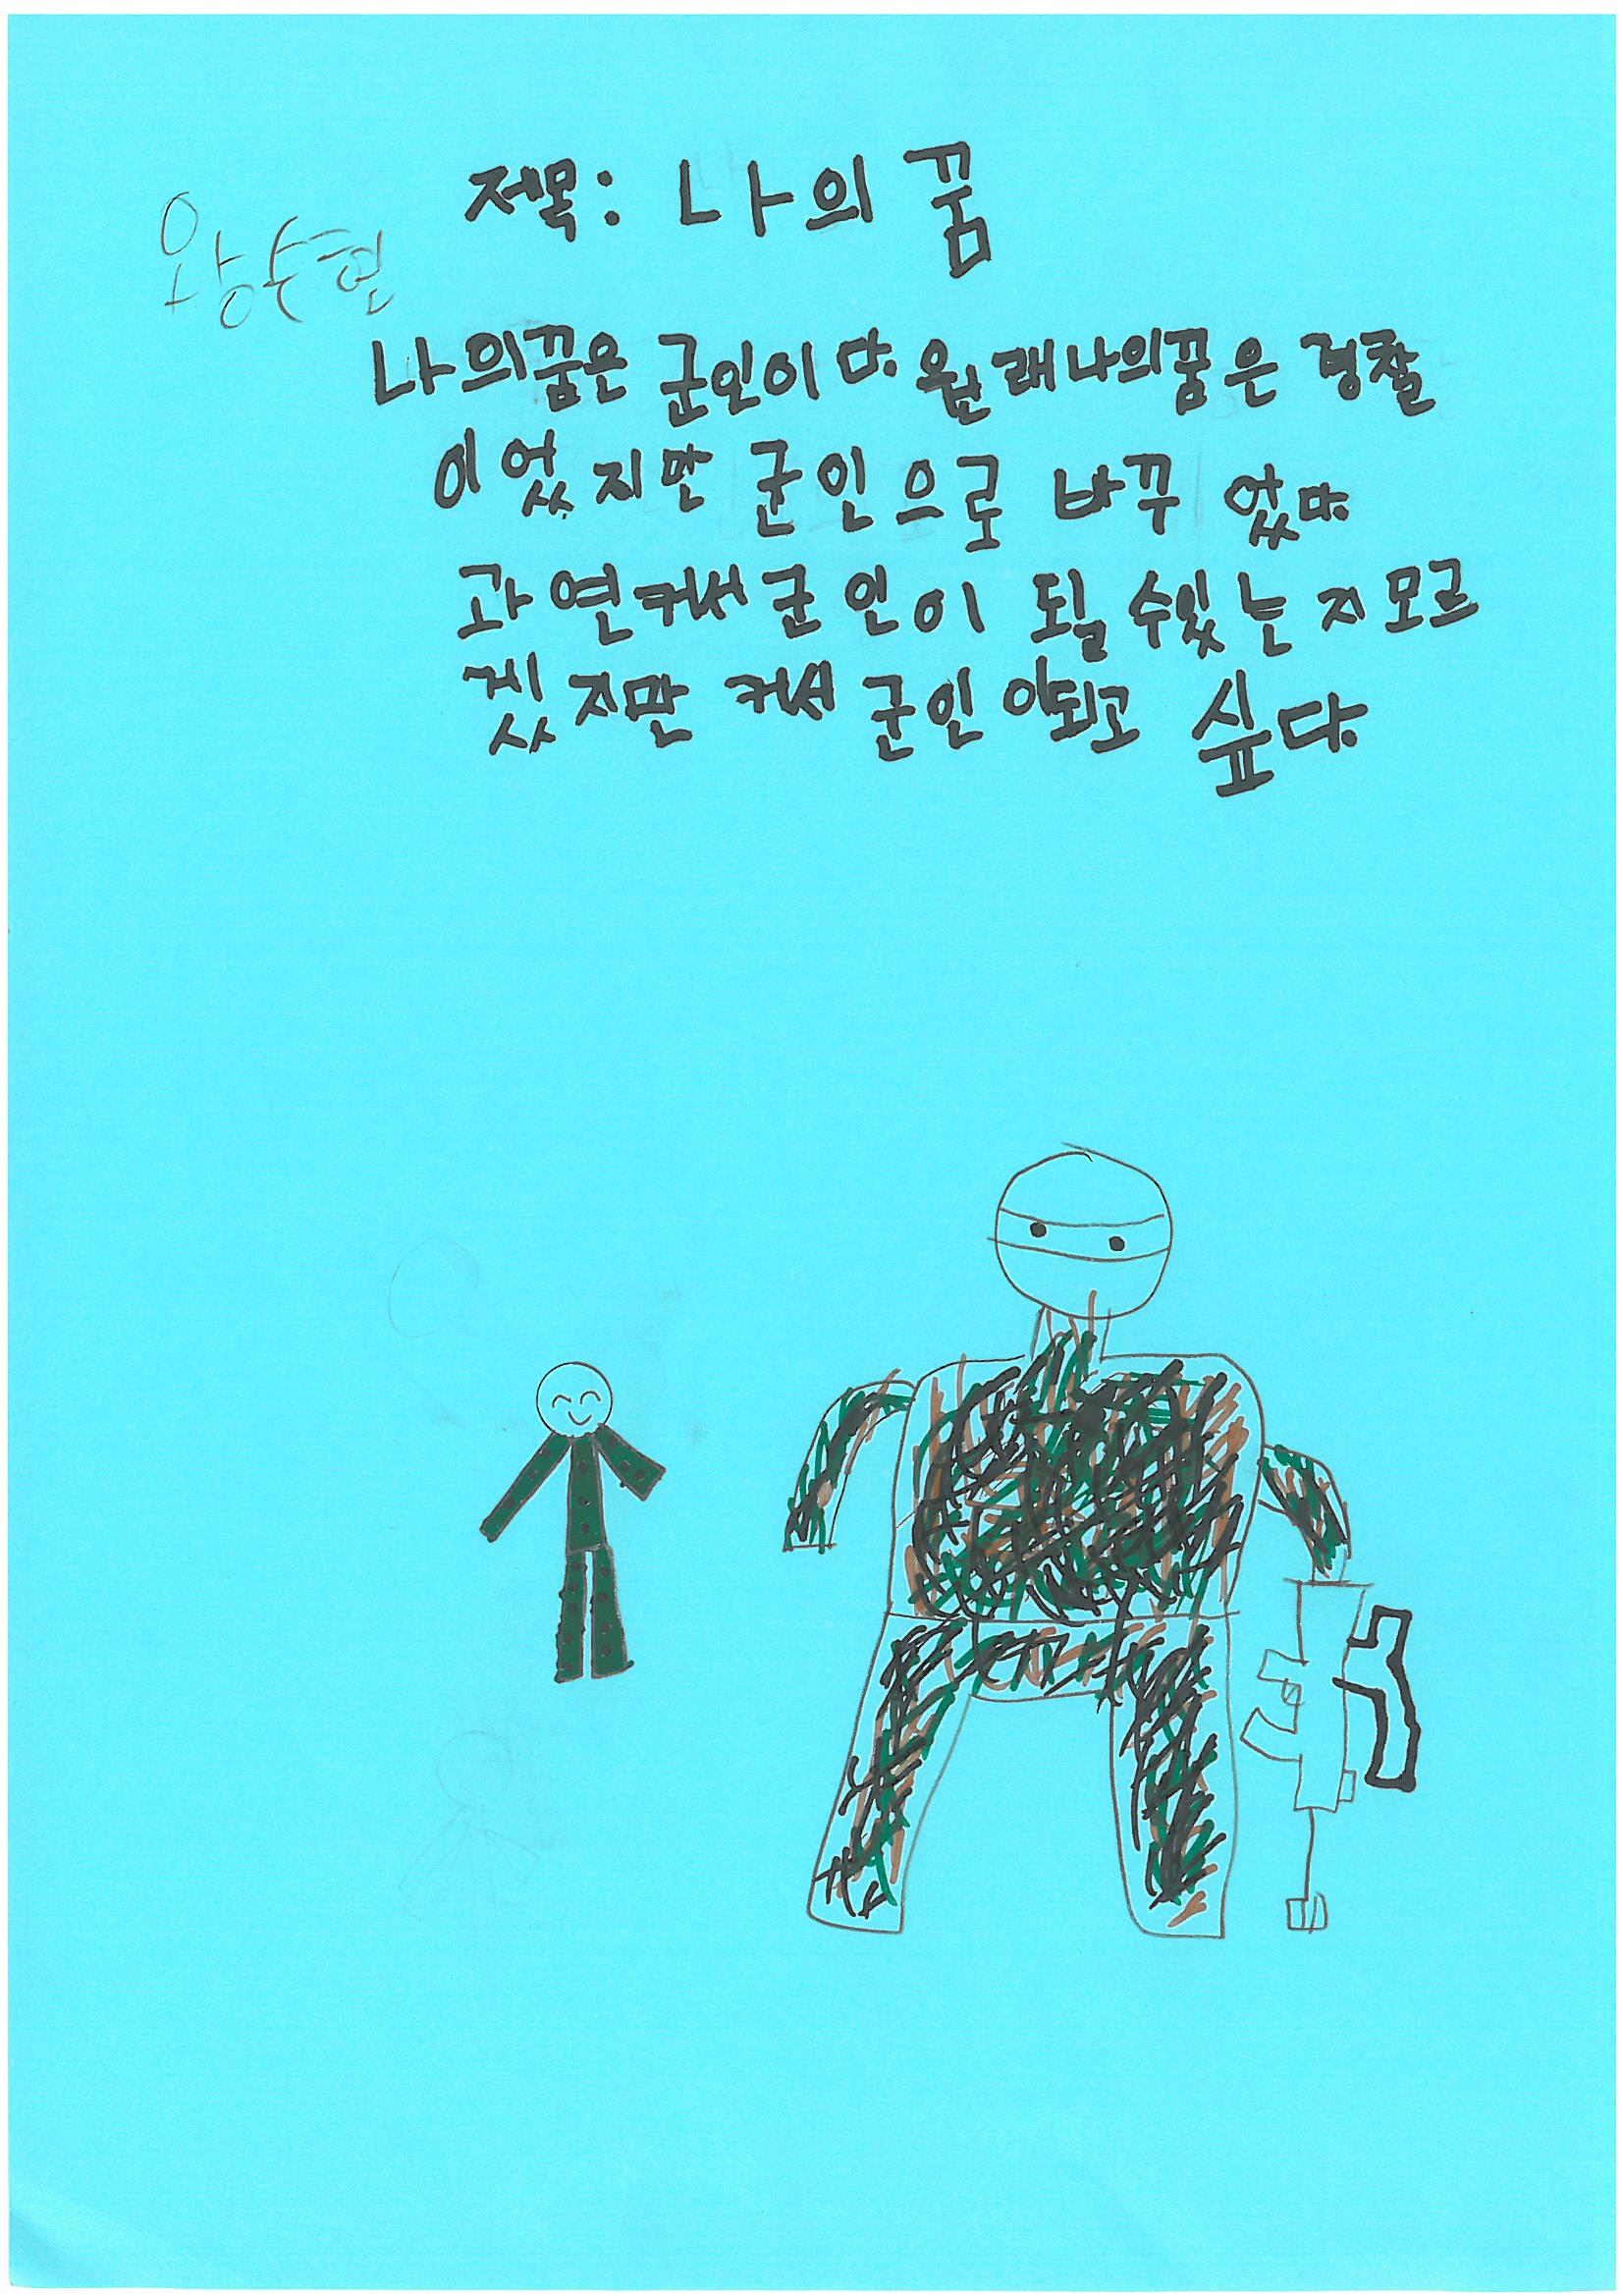 제목: 나의 꿈
왕수현
나의꿈은 군인이다. 원래나의꿈은 경찰
이었지만 군인으로 바꾸 었다.
과연커서군인이 될 수있는지모르
겠지만 커서 군인이되고 싶다.